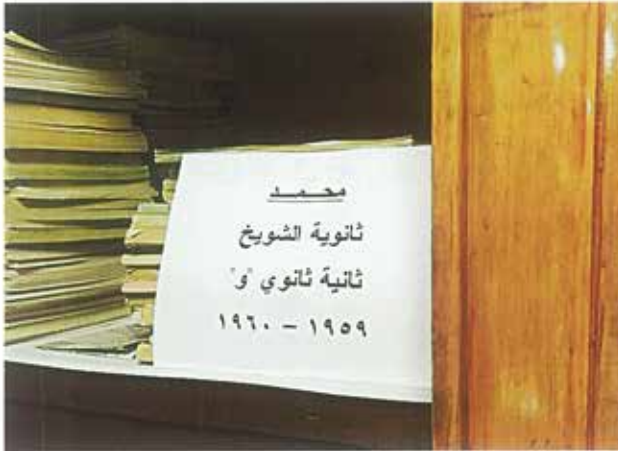 محمد
ثانوية الشويخ
ثانية ثانوي "و"
١٩٥٩ - ١٩٦٠